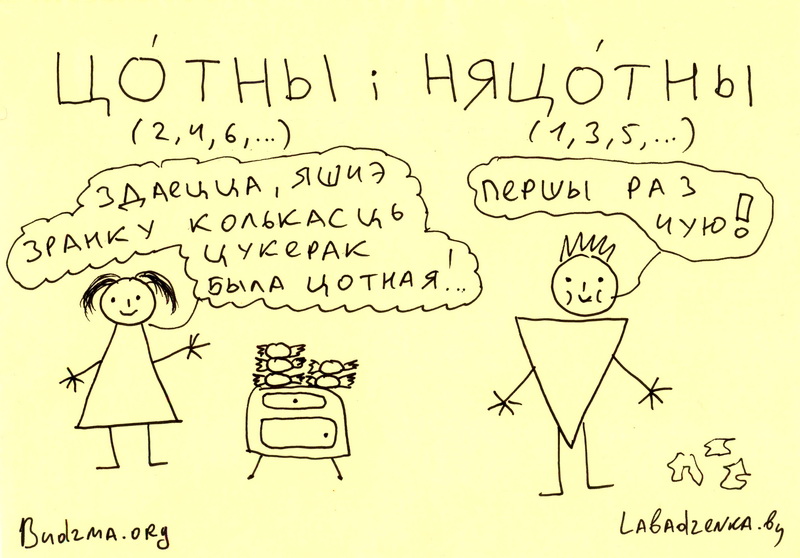 ЦО́ТНЫ і НЯЦО́ТНЫ
(2,4,6,...)
(1,3,5,...)
ЗДАЕЦЦА, ЯШЧЭ
ЗРАНКУ КОЛЬКАСЦЬ
ЦУКЕРАК
БЫЛА ЦОТНАЯ!..
ПЕРШЫ РАЗ
ЧУЮ!
Budzma.org
Labadzenka.by